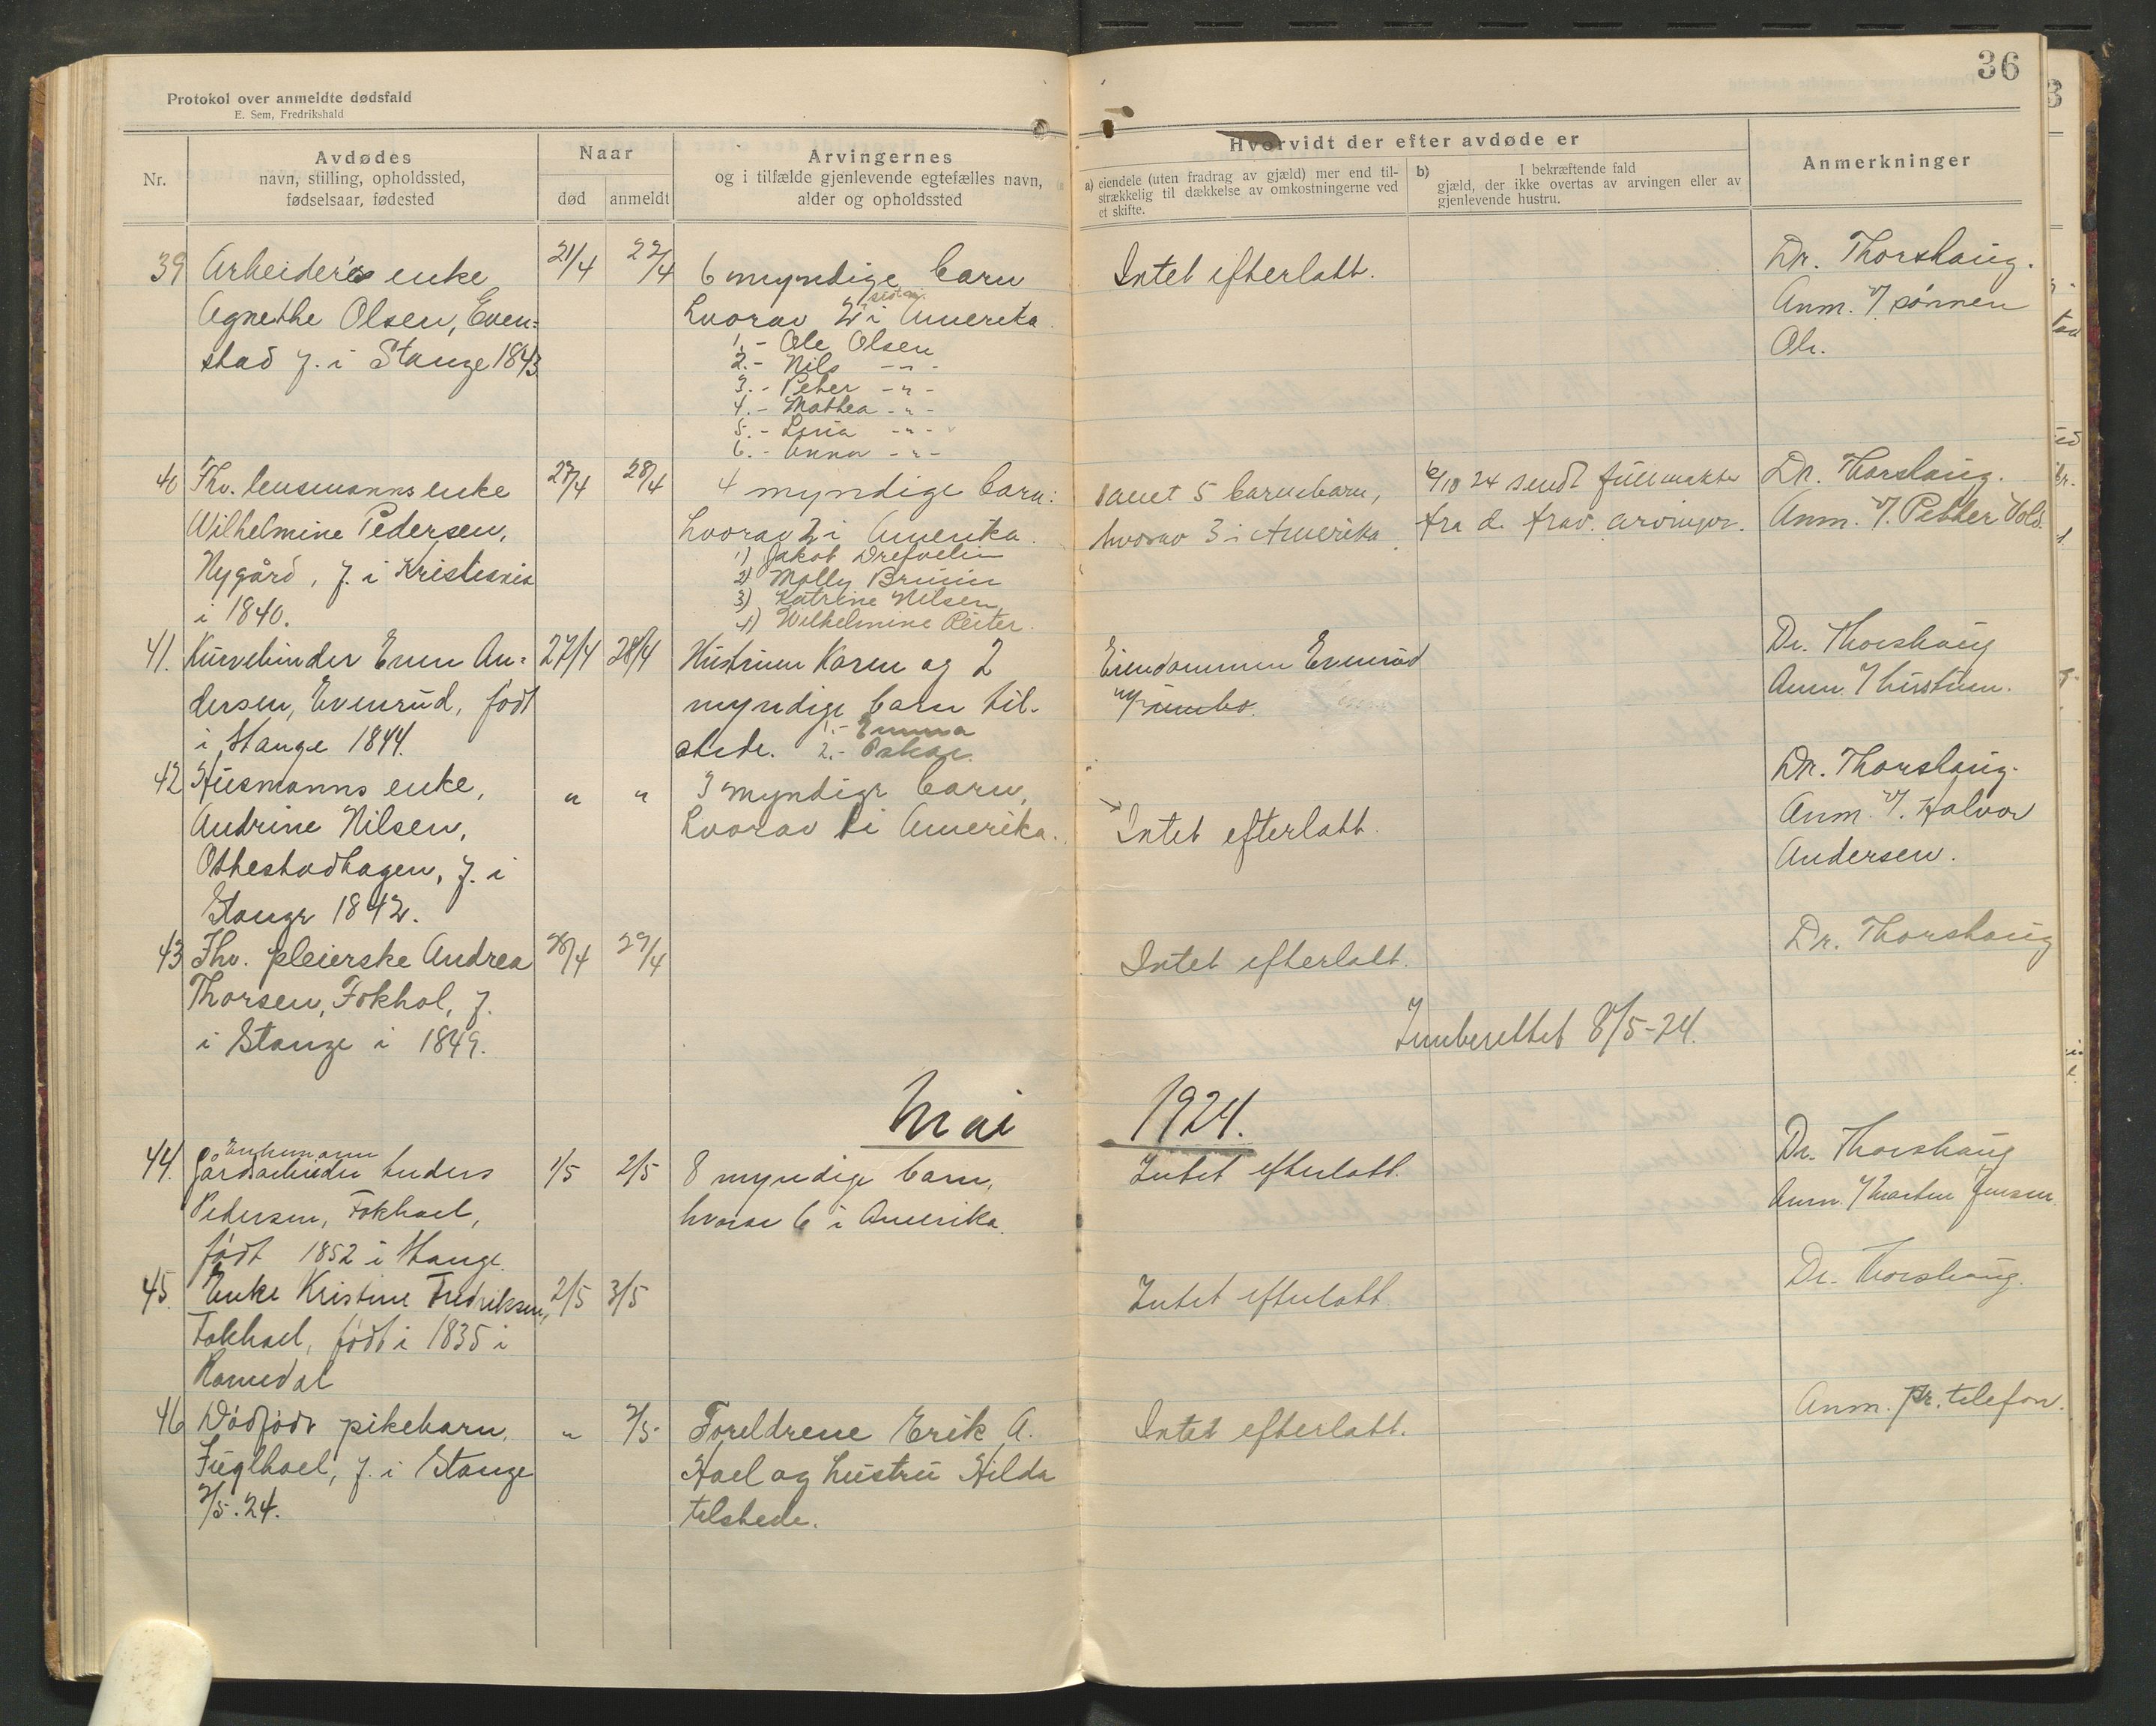 36
Protokol over anmeldte dødsfald
E. Sem, Fredrikshald
Nr.
Avdødes
navn, stilling, opholdssted,
fødselsaar, fødested
Naar
død
anmeldt
Arvingernes
og i tilfælde gjenlevende egtefælles navn,
alder og opholdssted
Hvorvidt der efter avdøde er
a) eiendele (uten fradrag av gjæld) mer end til-
strækkelig til dækkelse av omkostningerne ved
et skifte.
b) I bekræftende fald
gjæld, der ikke overtas av arvingen eller av
gjenlevende hustru.
Anmerkninger
39 Arbeider enke
Agnethe Olsen, Even=
stad f. i Stange 1843
21/4 22/4
6 myndige barn
hvorav 2 i Amerika.
1.- Ole Olsen
2.- Nils -"-
3.- Peter -"-
4.- Mathea -"-
5.- Lovia -"-
6.- Anna -"-
Intet efterlatt.
Dr. Thorshaug.
Anm. v/ sønnen
Ole.
40 Fhv. lensmanns enke
Wilhelmine Pedersen,
Nygård, f. i Kristiania
i 1840.
27/4 28/4
4 myndige barn:
hvorav 2 i Amerika.
1) Jakob Drefvelin
2) Molly Bruun
3) Katrine Nilsen
4) Wilhelmine Reiter.
samt 5 barnebarn,
hvorav 3 i Amerika
6/10 24 sendt fullmakter
fra d. frav. arvinger.
Dr. Thorshaug.
Anm. v/. Petter Vold.
41. Kurvebinder Even An=
dersen, Evenrud, født
i Stange 1844.
27/4 28/4
Hustruen Karen og 2
myndige barn til-
stede. 1.- Emma
2.- Oskar.
Eiendommen Evenrud
m/ innbo.
Dr. Thorshaug
Anm. v/ hustruen.
42 Husmanns enke,
Andrine Nilsen,
Ottestadhagen, f. i
Stange 1842.
" "
3 myndige barn,
hvorav 1 i Amerika.
Intet efterlatt.
Dr. Thorshaug.
Anm. v/. Halvor
Andersen.
43 Fhv. pleierske Andrea
Thorsen, Fokhol, f.
i Stange i 1849.
28/4 29/4
Intet efterlatt.
Dr. Thorshaug
Innberettet 8/5-24.
Mai 1924.
44. Enkemann
Gårdsarbeider Anders
Pedersen, Fokhoel,
født 1852 i Stange.
1/5 2/5
8 myndige barn,
hvorav 6 i Amerika.
Intet efterlatt.
Dr. Thorshaug
Anm. v/ Marten Jensen.
45. Enke Kristine Fredriksen,
Fokhoel, født i 1835 i
Romedal
2/5 3/5
Intet efterlatt
Dr. Thorshaug.
46 Dødfødt pikebarn,
Fuglhoel, f. i Stange
2/5.24.
" 2/5
Foreldrene Erik A.
Hoel og hustru Hilda
tilstede.
Intet efterlatt.
Anm. pr. telefon.